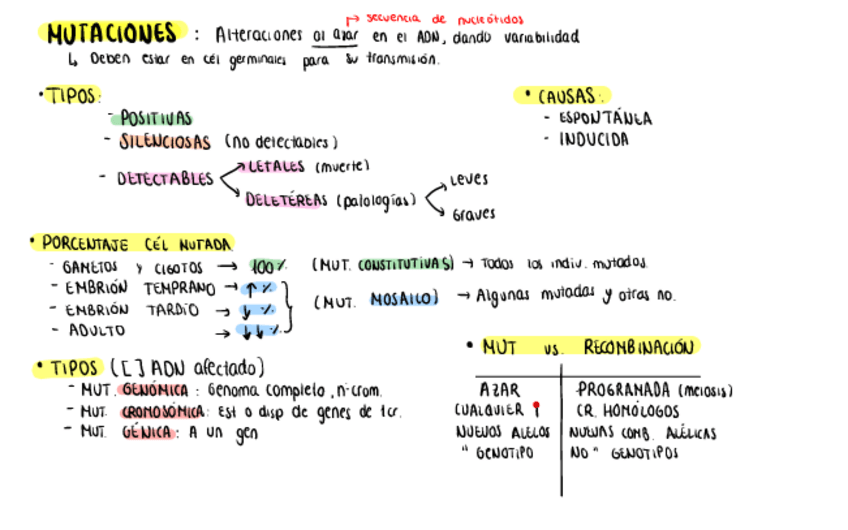 ↱ secuencia de nucleótidos
MUTACIONES : Alteraciones al azar en el ADN, dando variabilidad
↳ Deben estar en cél germinales para su transmisión.
• TIPOS:
- POSITIVAS
- SILENCIOSAS (no detectables)
- DETECTABLES
LETALES (muerte)
DELETÉREAS (patologías)
Leves
Graves
• CAUSAS:
- ESPONTÁNEA
- INDUCIDA
• PORCENTAJE CÉL MUTADA
- GAMETOS y CIGOTOS → 100% (MUT. CONSTITUTIVAS) → Todos los indiv. mutados.
- EMBRIÓN TEMPRANO → ↑ %
- EMBRIÓN TARDÍO → ↓ %
- ADULTO → ↓↓ %
(MUT. MOSAICO) → Algunas mutadas y otras no.
• TIPOS ([ ] ADN afectado)
- MUT. GENÓMICA : Genoma completo, nº crom.
- MUT. CROMOSÓMICA: Est o disp de genes de 1cr.
- MUT. GÉNICA : A un gen
• MUT vs. RECOMBINACIÓN
AZAR PROGRAMADA (meiosis)
CUALQUIER CR. HOMÓLOGOS
NUEVOS ALELOS NUEVAS COMB. ALÉLICAS
" GENOTIPO NO " GENOTIPOS